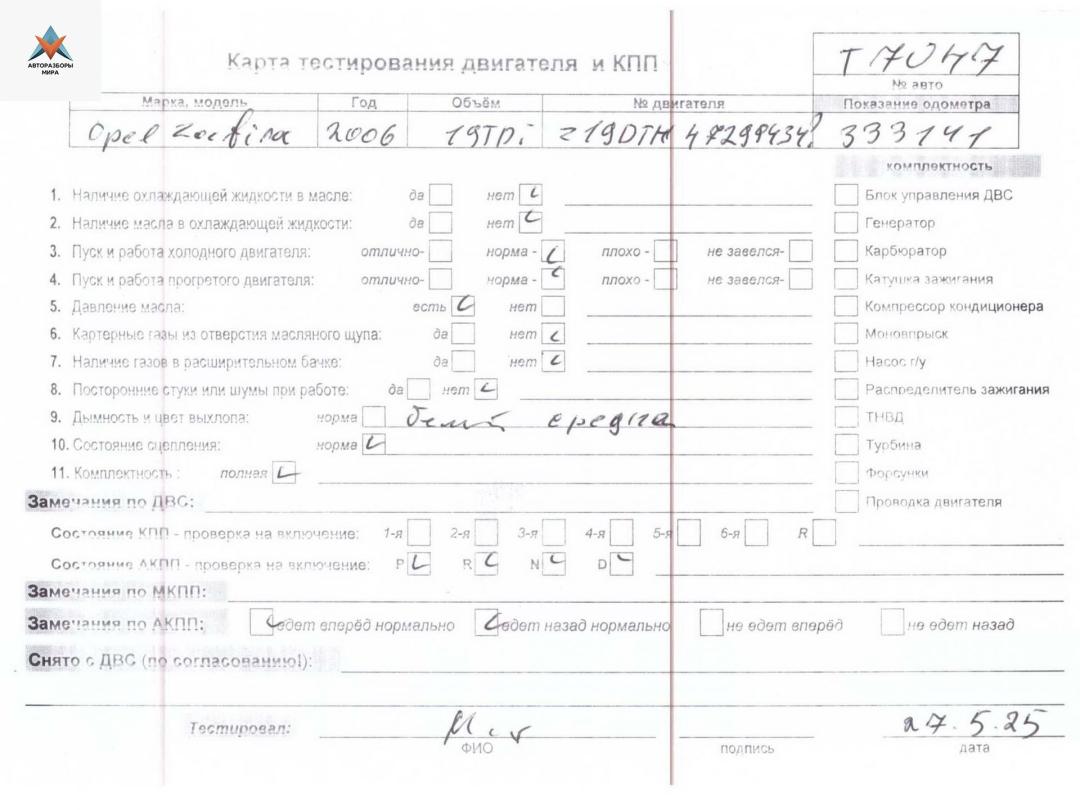 АВТОРАЗБОРЫ
МИРА
Карта тестирования двигателя и КПП
T 7047
№ авто
Марка, модель Год Объём № двигателя Показание одометра
Opel Zafira 2006 19TDi z19DTH 333141
комплектность
1. Наличие охлаждающей жидкости в масле: да нет
Блок управления ДВС
2. Наличие масла в охлаждающей жидкости: да нет
Генератор
3. Пуск и работа холодного двигателя: отлично- норма - плохо - не завелся-
Карбюратор
4. Пуск и работа прогретого двигателя: отлично- норма - плохо - не завелся-
Катушка зажигания
5. Давление масла: есть нет
Компрессор кондиционера
6. Картерные газы из отверстия масляного щупа: да нет
Моновпрыск
7. Наличие газов в расширительном бачке: да нет
Насос г/у
8. Посторонние стуки или шумы при работе: да нет
Распределитель зажигания
9. Дымность и цвет выхлопа: норма
ТНВД
10. Состояние сцепления: норма
Турбина
11. Комплектность : полная
Форсунки
Замечания по ДВС:
Проводка двигателя
Состояние КПП - проверка на включение: 1-я 2-я 3-я 4-я 5-я 6-я R
Состояние АКПП - проверка на включение: P R N D
Замечания по МКПП:
Замечания по АКПП: едет вперёд нормально едет назад нормально не едет вперёд не едет назад
Снято с ДВС (по согласованию!):
Тестировал: 27.5.25
ФИО подпись дата